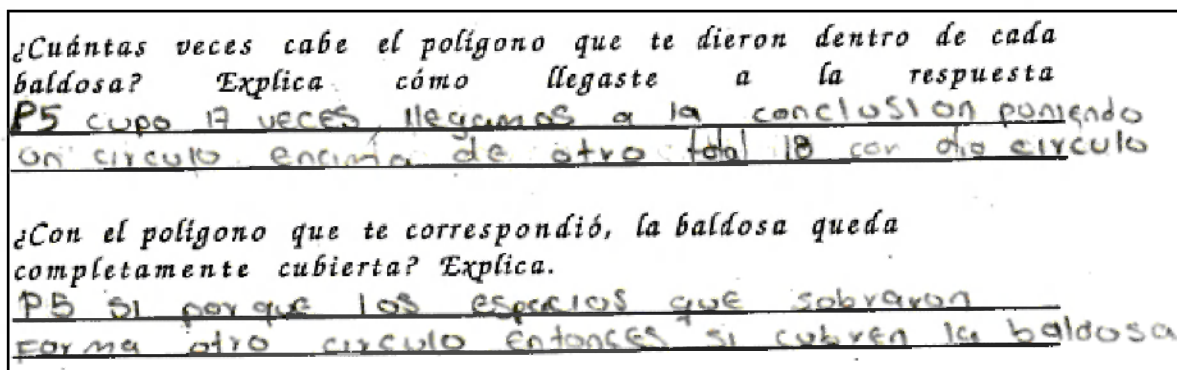 ¿Cuántas veces cabe el polígono que te dieron dentro de cada
baldosa? Explica cómo llegaste a la respuesta
P5 cupo 17 veces llegamos a la conclusion poniendo
un circulo encima de otro total 18 con otro circulo
¿Con el polígono que te correspondió, la baldosa queda
completamente cubierta? Explica.
P5 si por que los espacios que sobraron
Forma otro circulo entonces si cubren la baldosa